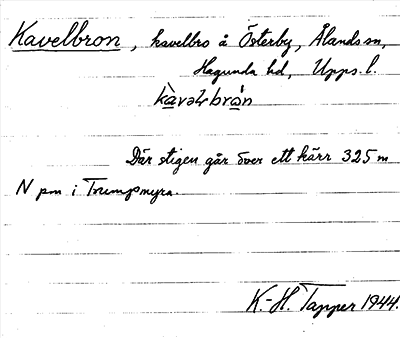 Kavelbron, kavelbro å Österby, Ålands sn,
Hagunda hd, Upps. l.
Där stigen går över ett kärr 325 m
N pm i Trumpmyra.
K.-H. Tapper 1944.